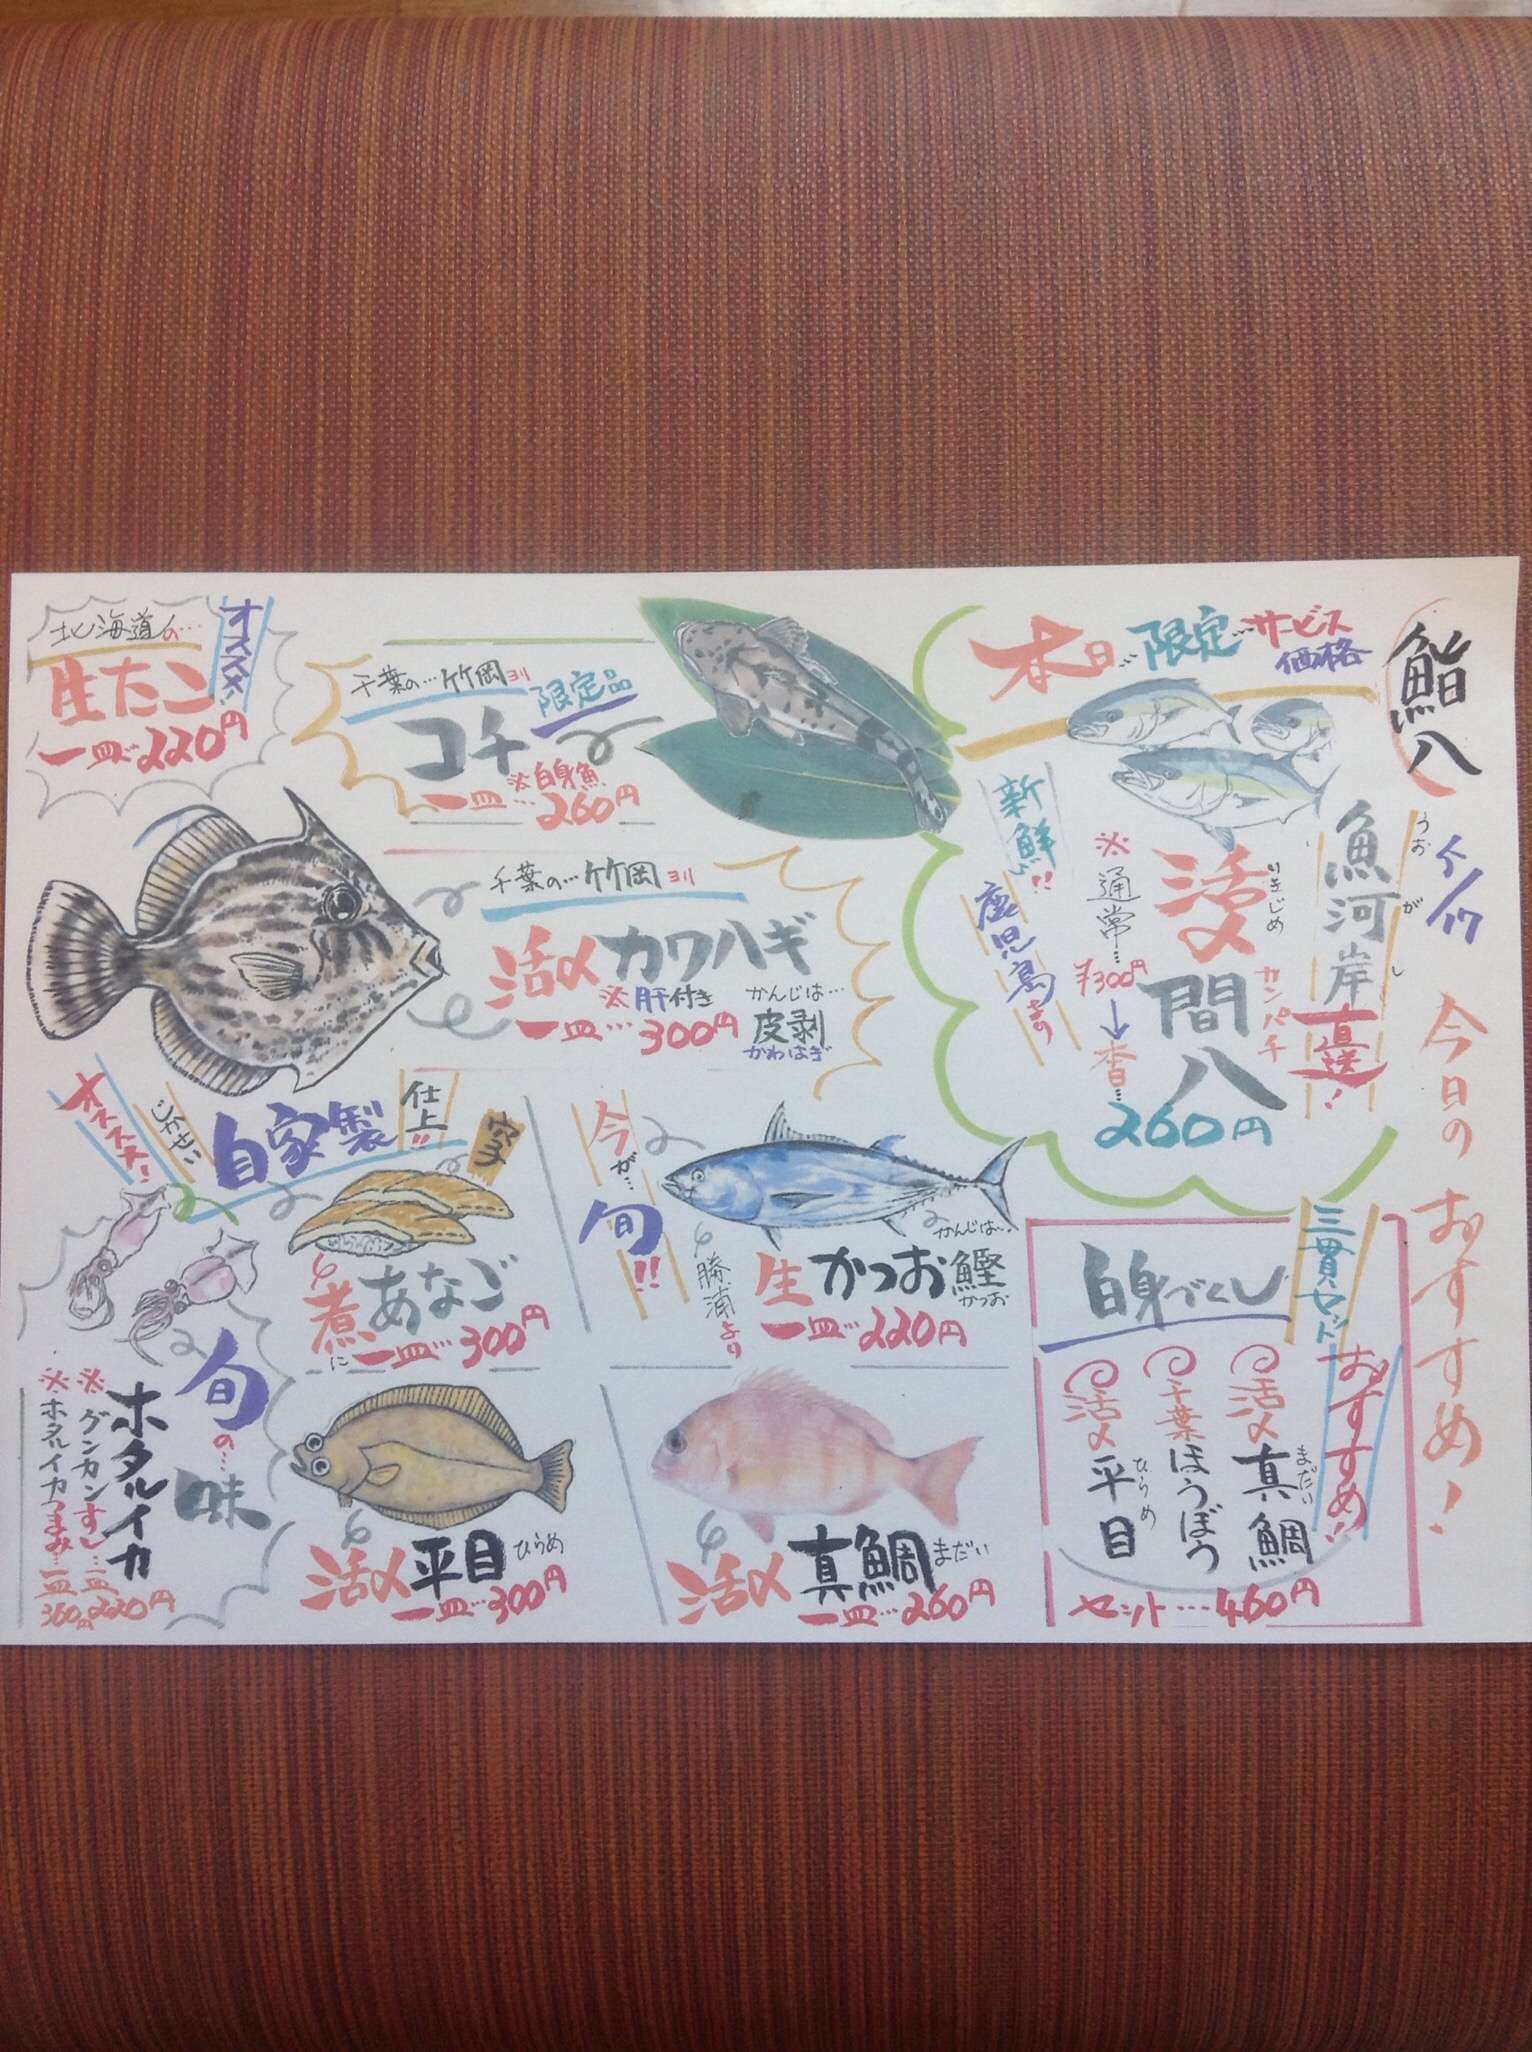 鮨八
今日のおすすめ!
本日…限定…サービス
価格
魚河岸直送!
うおがし
活〆
いきじめ
間八
カンパチ
※通常…¥300円
↓
260円
新鮮!!
鹿児島より
三貫セット
おすすめ!
白身づくし
活〆真鯛
まだい
千葉ほうぼう
活〆平目
ひらめ
セット…460円
千葉の…竹岡ヨリ
限定品
コチ
※白身魚
一皿…260円
北海道の…
オススメ!
生たこ
一皿…220円
千葉の…竹岡ヨリ
活〆カワハギ
※肝付き
かんじは…
皮剥
かわはぎ
一皿…300円
今が…
旬!!
勝浦より
かんじは…
生かつお鰹
かつお
一皿…220円
オススメ!
自家製
仕上!!
穴子
煮あなご
に
一皿…300円
旬の…味
ホタルイカ
※グンカンすし…一皿220円
※ホタルイカつまみ…一皿360円
活〆平目ひらめ
一皿…300円
活〆真鯛まだい
一皿…260円